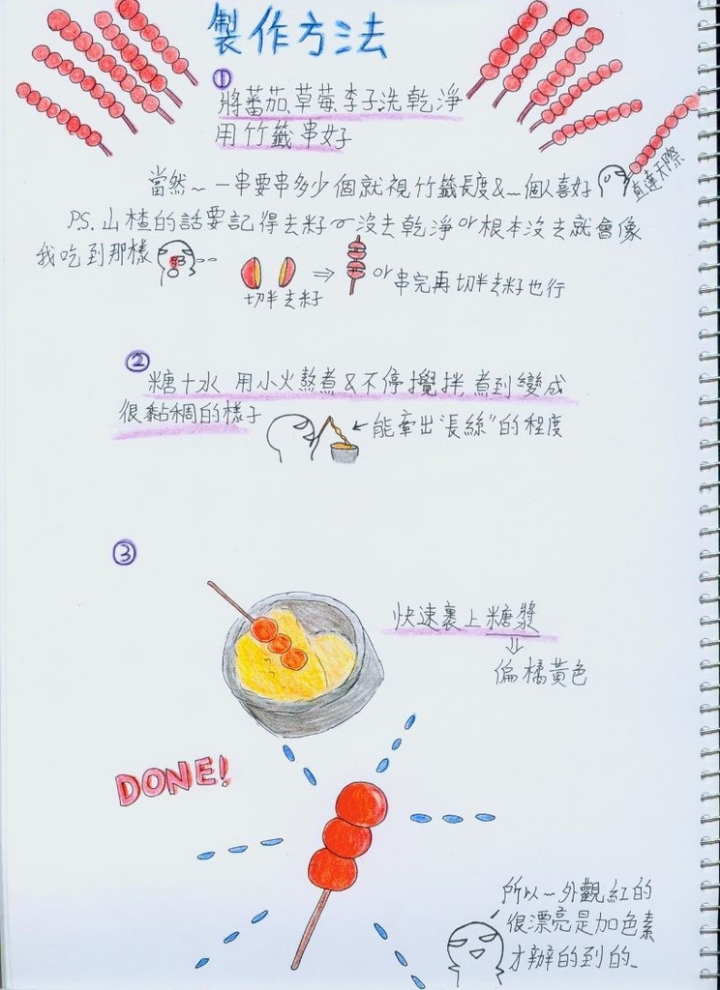 製作方法
①
將蕃茄、草莓、李子洗乾淨
用竹籤串好
當然~ 一串要串多少個就視竹籤長度&...個人喜好
直達天際
PS. 山楂的話要記得去籽~沒去乾淨or根本沒去就會像
我吃到那樣
切半去籽
or串完再切半去籽也行
②
糖+水 用小火熬煮&不停攪拌,煮到變成
很黏稠的樣子
能牽出"長絲"的程度
③
快速裹上糖漿
偏橘黃色
DONE!
所以~外觀紅的
很漂亮是加色素
才辦的到的、